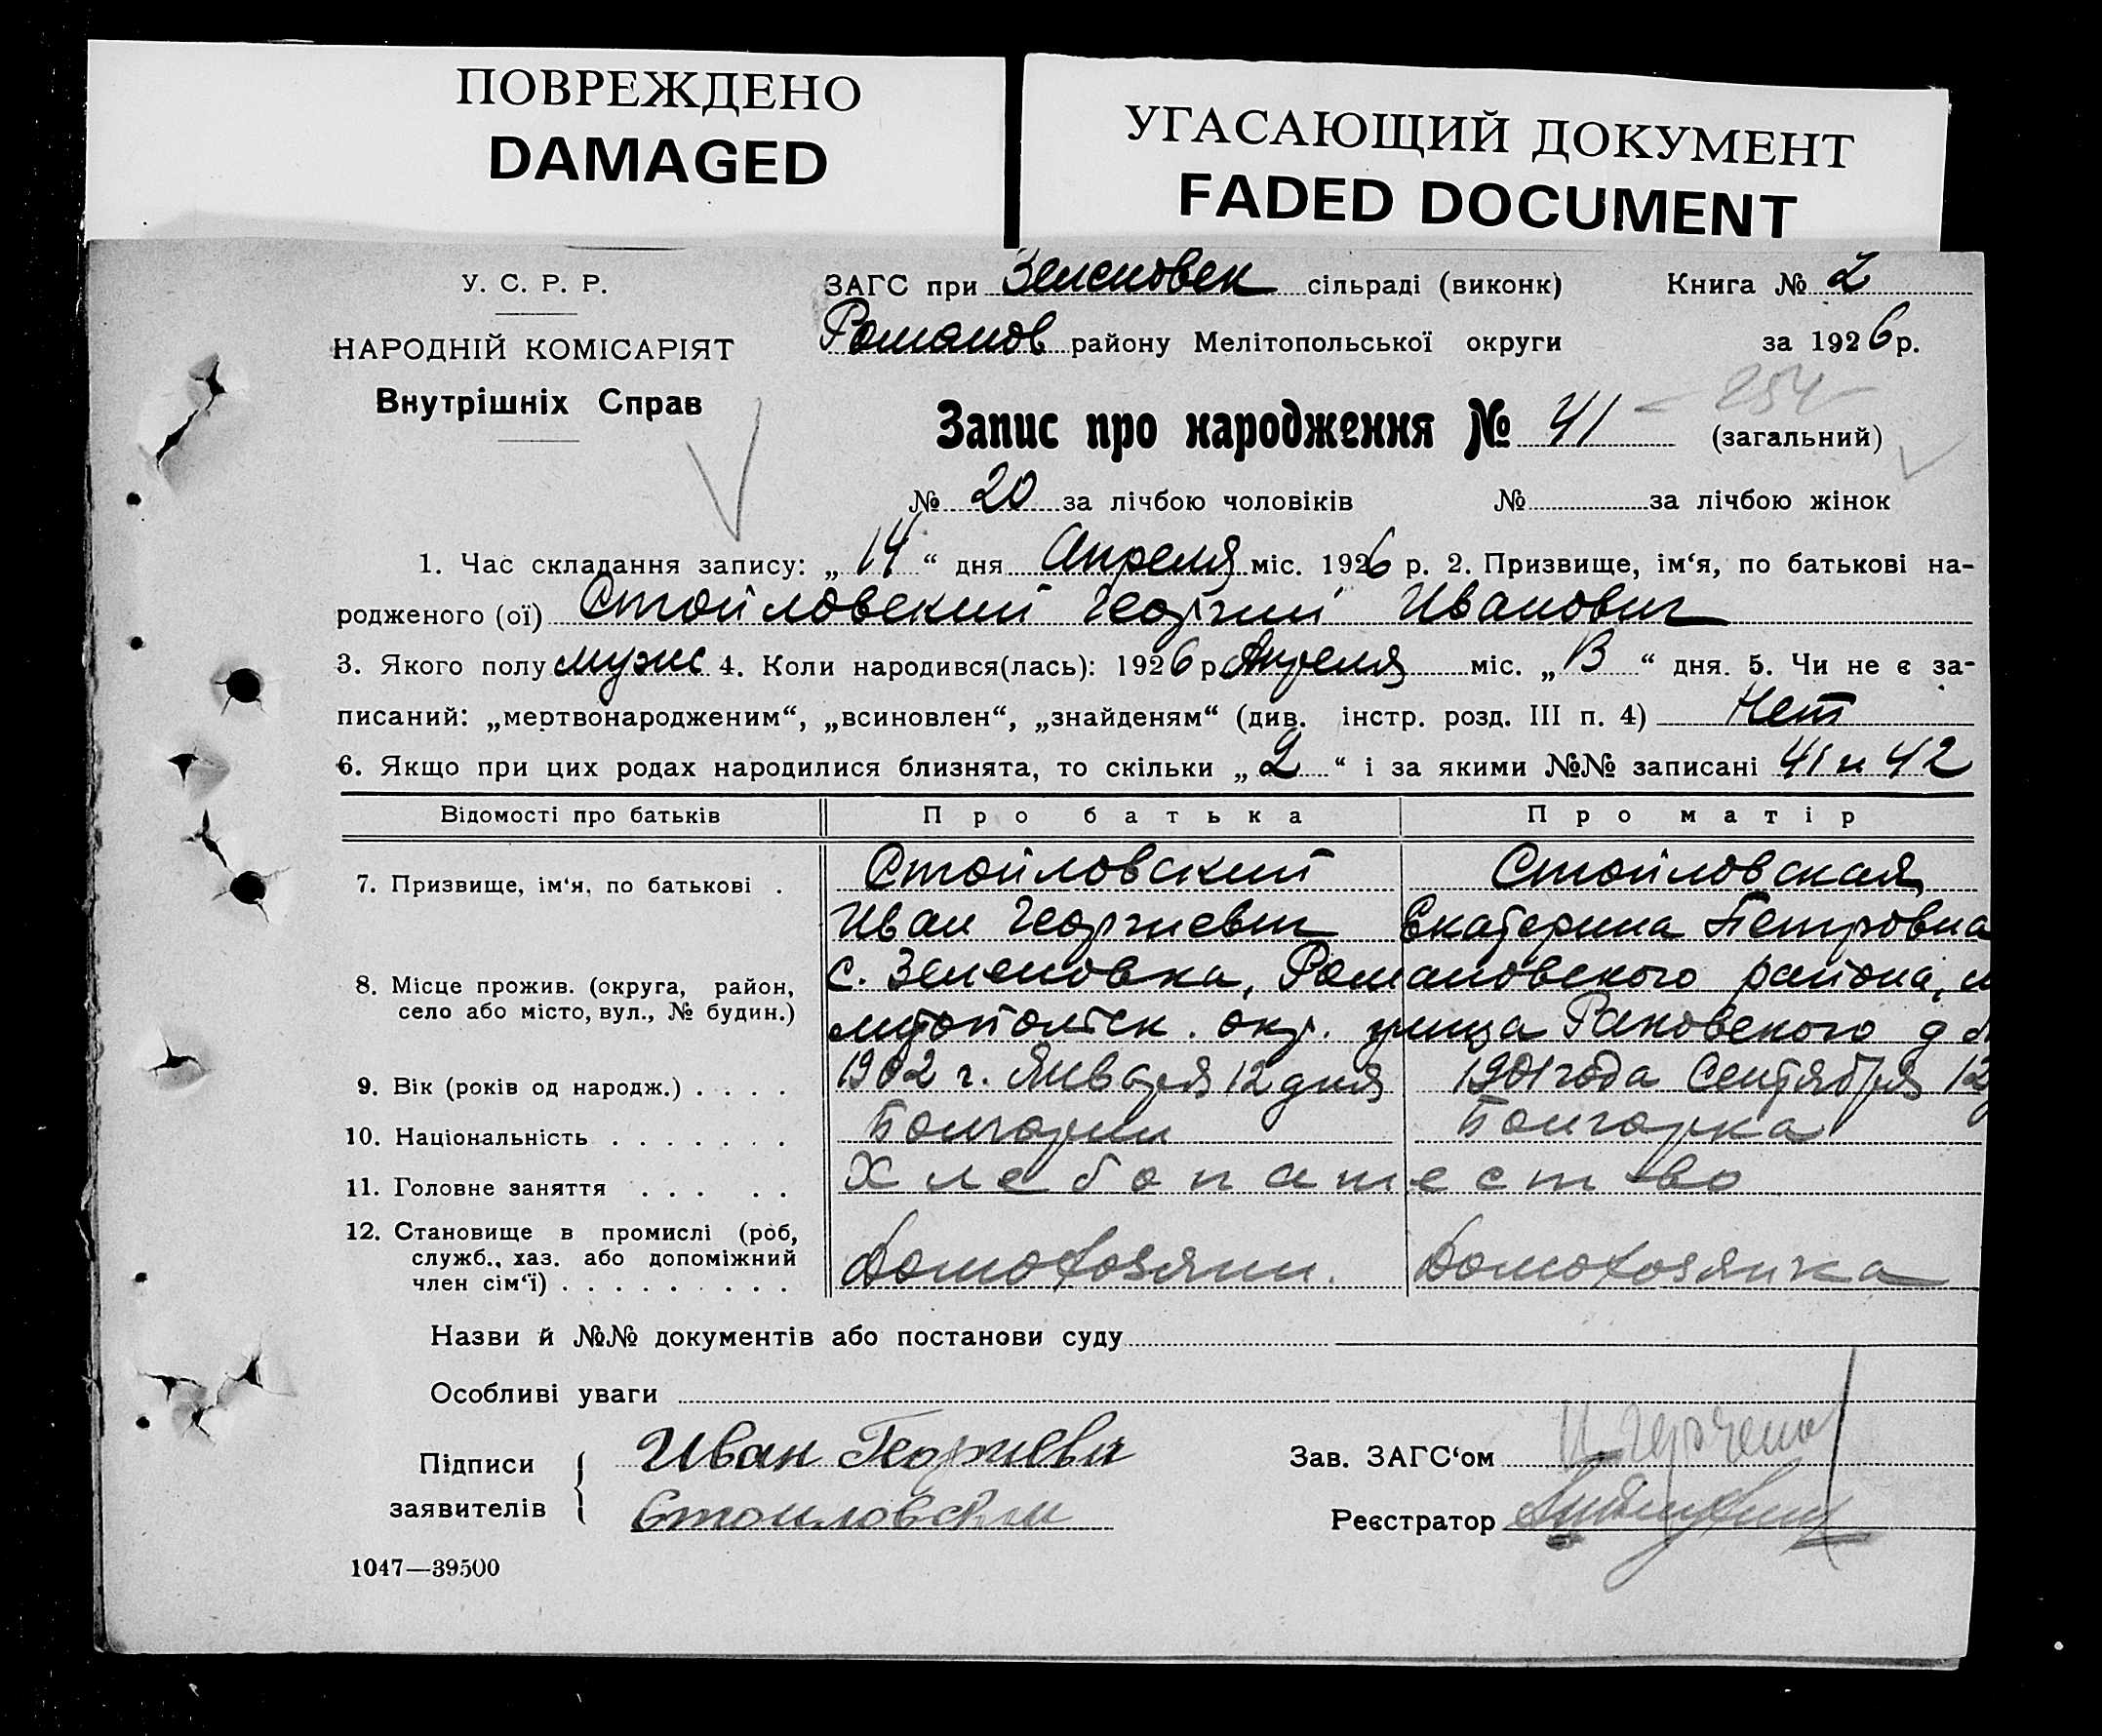 ПОВРЕЖДЕНО
DAMAGED
УГАСАЮЩИЙ ДОКУМЕНТ
FADED DOCUMENT
У. С. Р. Р.
НАРОДНІЙ КОМІСАРІЯТ
Внутрішніх Справ
ЗАГС при Зеленовск сільраді (виконк) Книга № 2
Романов району Мелітопольської округи за 1926 р.
254
Запис про народження № 41 (загальний)
№ 20 за лічбою чоловіків № за лічбою жінок
1. Час складання запису: „ 14 “ дня Апреля міс. 1926 р. 2. Призвище, ім‘я, по батькові на-
родженого (ої) Стойловский Георгий Иванович
3. Якого полу мужс 4. Коли народився(лась): 1926 р. Апреля міс. „ 13 “ дня. 5. Чи не є за-
писаний: „мертвонародженим“, „всиновлен“, „знайденям“ (див. інстр. розд. III п. 4) Нет
6. Якщо при цих родах народилися близнята, то скільки „ 2 “ і за якими №№ записані 41 и 42
Відомості про батьків Про батька Про матір
7. Призвище, ім‘я, по батькові . Стойловский Стойловская
Иван Георгиевич Екатерина Петровна
8. Місце прожив. (округа, район,
село або місто, вул., № будин.)
с. Зеленовка, Романовского района,
литопольск. окр. улица Раковского
9. Вік (років од народж.) . . . . 1902 г. Января 12 дня 1901 года Сентября 12
10. Національність . . . . . . . Болгарин Болгарка
11. Головне заняття . . . . . Хлебопашество
12. Становище в промислі (роб,
служб., хаз. або допоміжний
член сім‘ї) . . . . . . . . . Домохозяин. Домохозяйка
Назви й №№ документів або постанови суду
Особливі уваги
Підписи
заявителів
Иван Георгиеви
Стоиловский
Зав. ЗАГС‘ом
Реєстратор
1047—39500